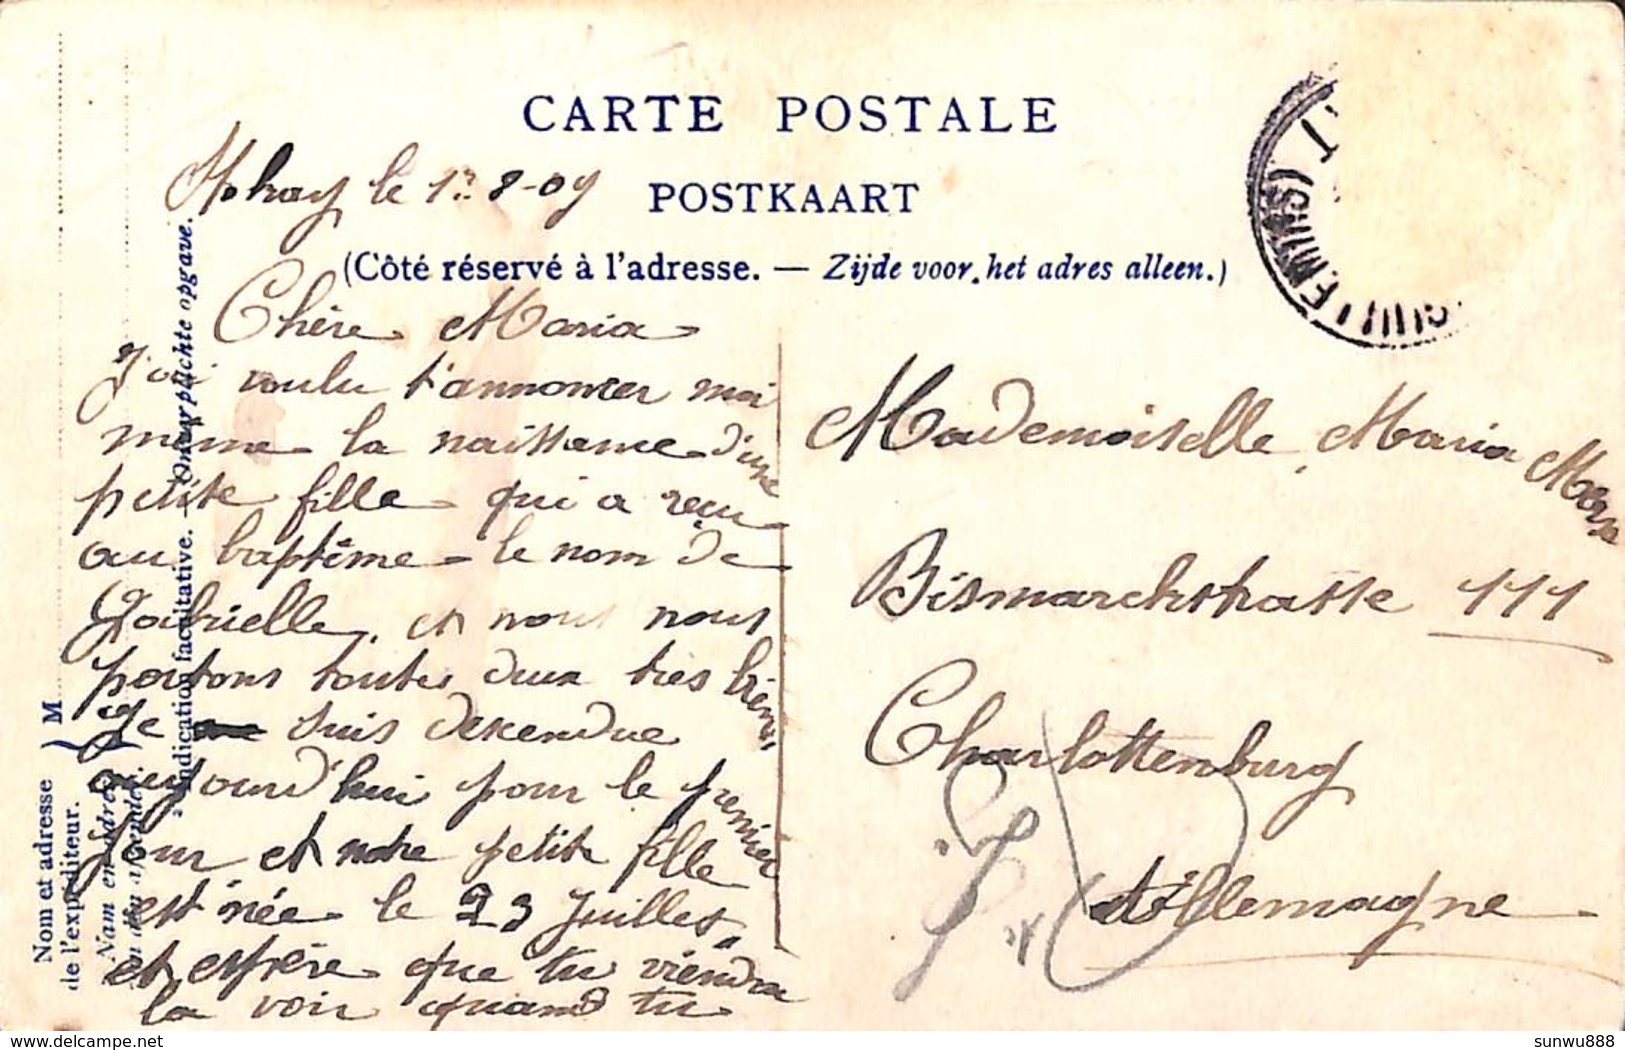 CARTE POSTALE
POSTKAART
(Côté réservé à l'adresse. — Zijde voor het adres alleen.)
le 12 8-09
Chère Maria
J'ai voulu t'annoncer moi
meme la naissance d'une
petite fille qui a reçu
au baptême le nom de
Gabrielle, et nous nous
portons toutes deux tres bien,
Je suis descendue
aujourd'hui pour le premier
jour et notre petite fille
est née le 23 Juillet,
et espère que tu viendra
la voir quand tu
Mademoiselle Maria
Bismarckstrasse 111
Charlottenburg
Allemagne
GUILLEMINS)
Nom et adresse
de l'expéditeur.
M
Indication facultative. — Onverplichte opgave.
sunwu888